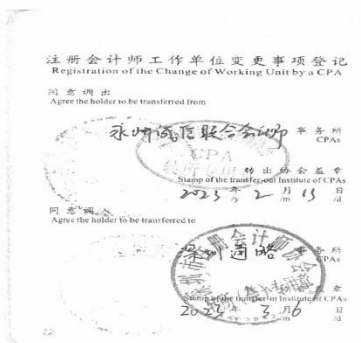 注册会计师工作单位变更事项登记
Registration of the Change of Working Unit by a CPA
同意调出
Agree the holder to be transferred from
诚信联合会师 事务所
CPAs
CPA
转出协会盖章
Stamp of the transfer-out Institute of CPAs
2023 年 2 月 13 日
/y /m /d
同意调入
Agree the holder to be transferred to
深圳 事务所
CPAs
Stamp of the transfer-in Institute of CPAs
2023 年 3 月 6 日
/y /m /d
12